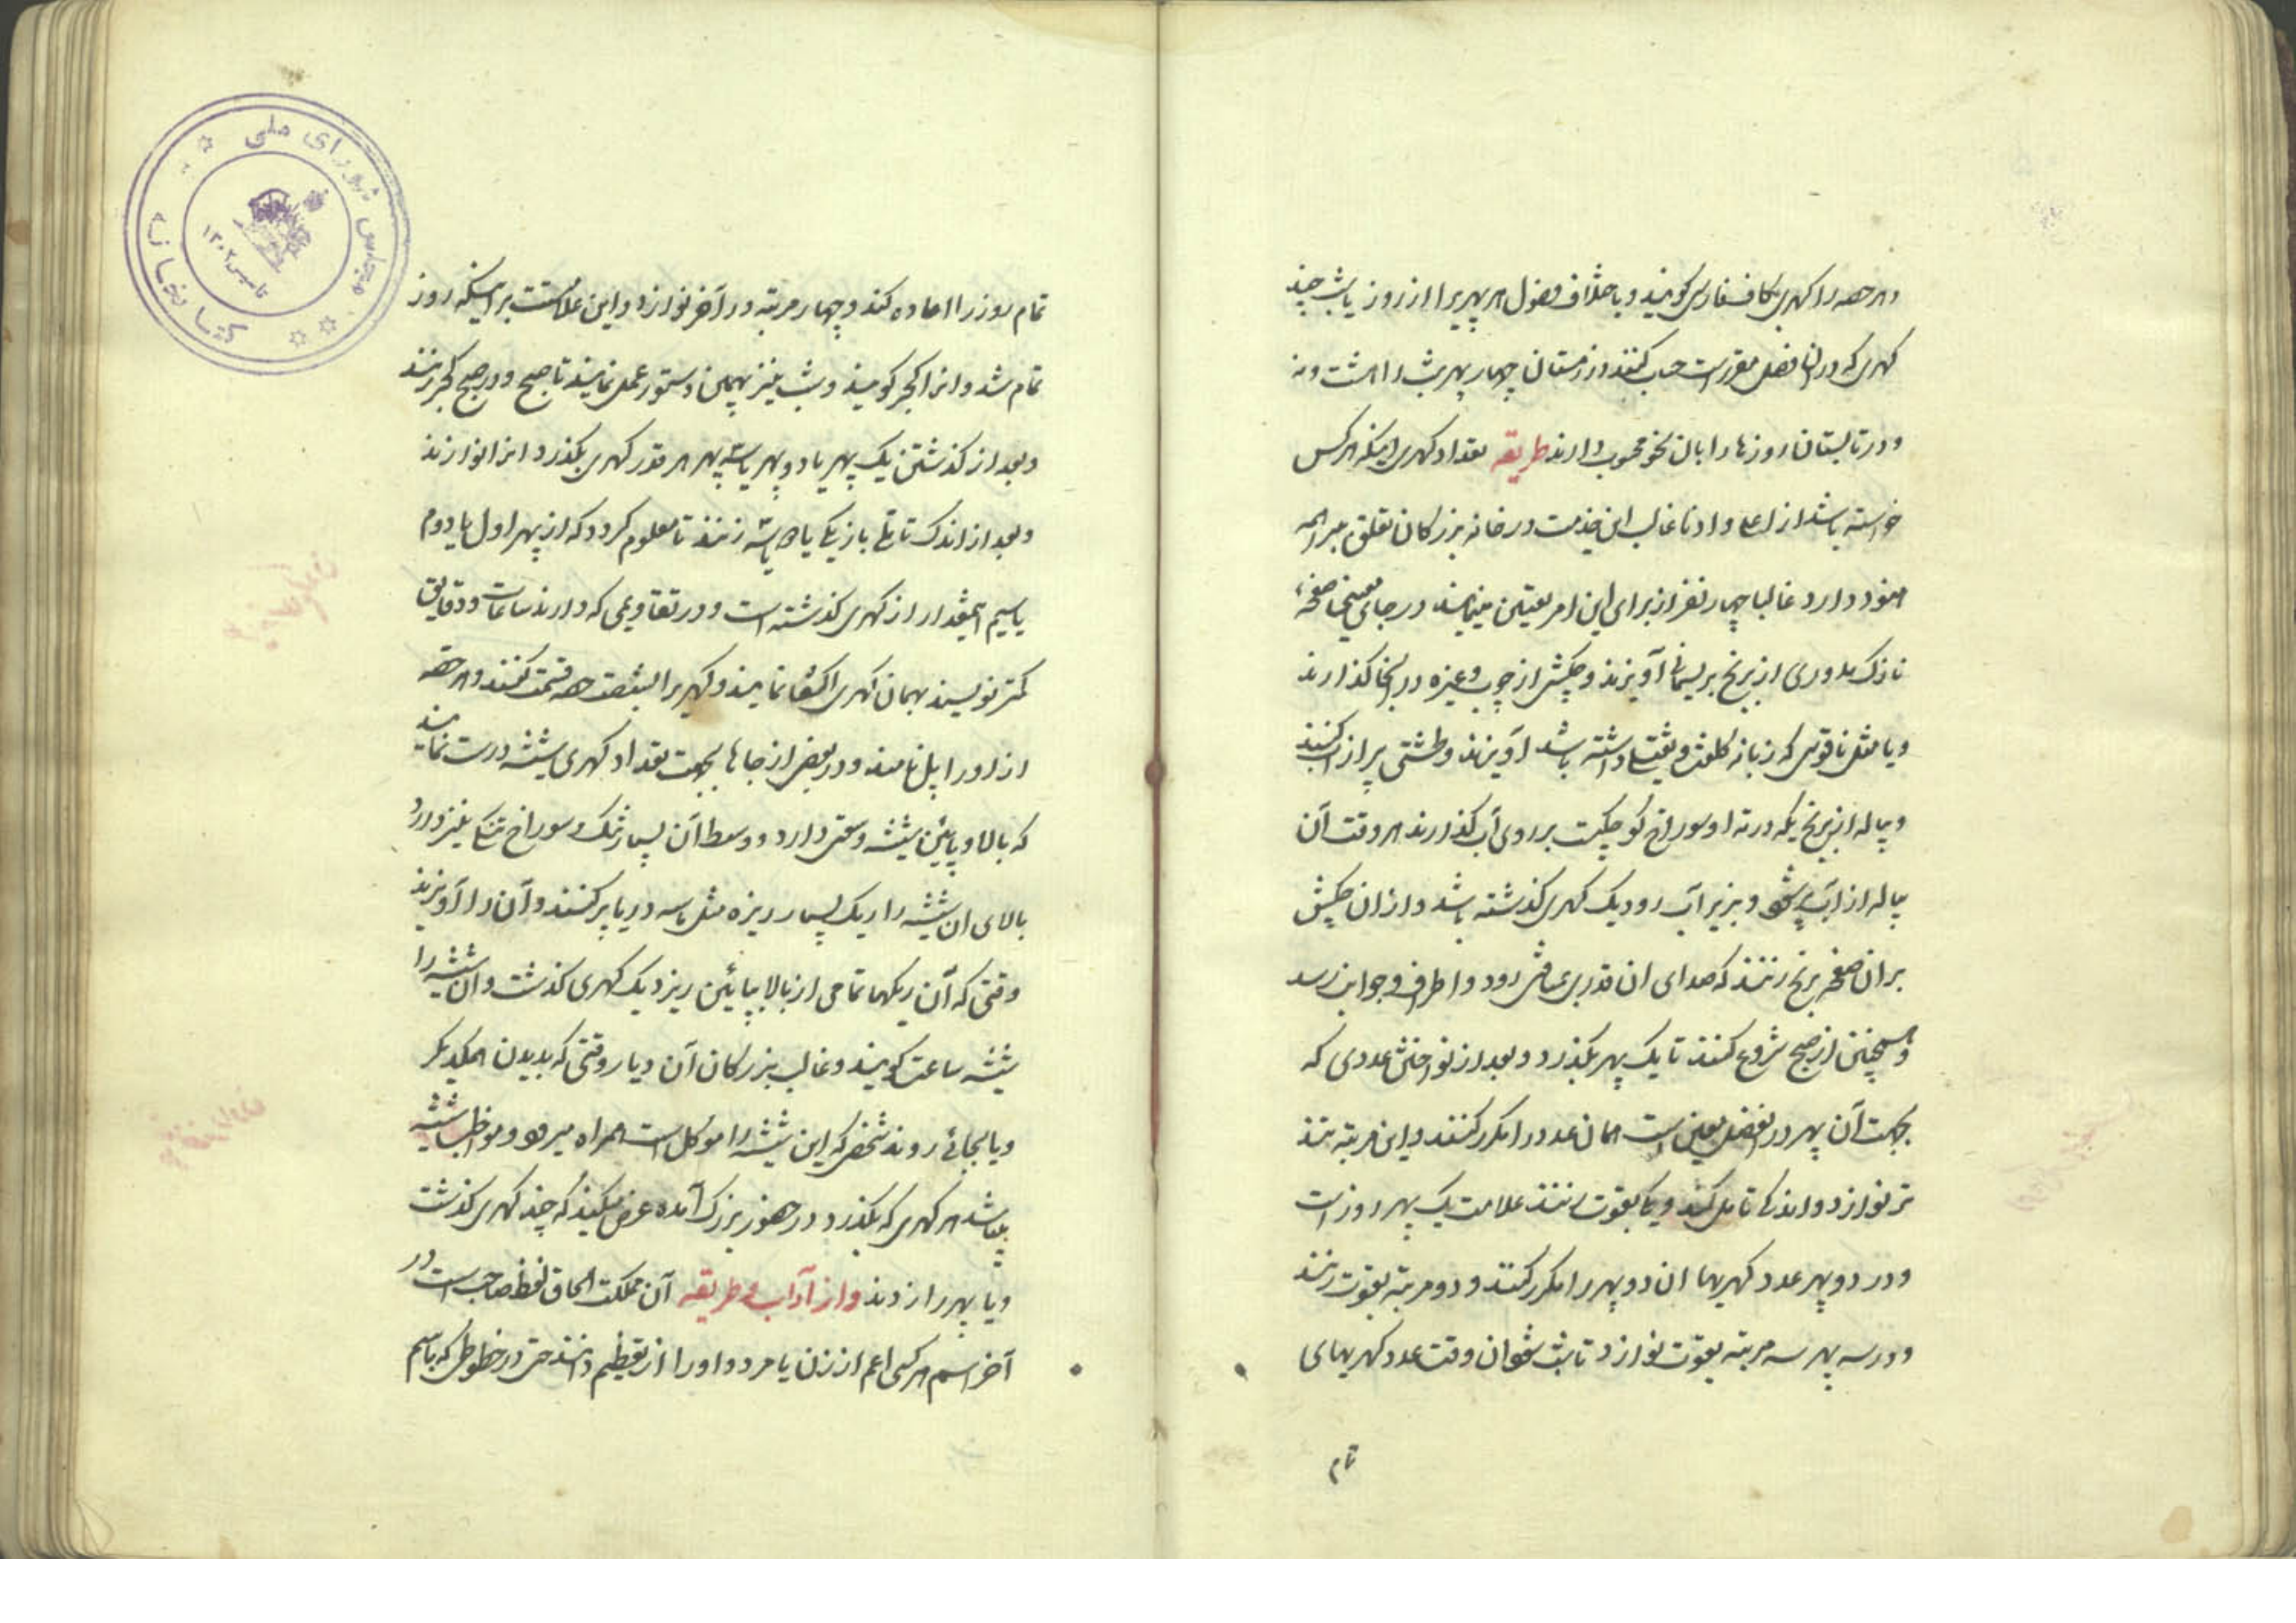 و هر حصه را کهری بکاف فارسی کویند و باختلاف فصول هر پهریرا از روز یا شب چند
کهری که در ان فصل مقرر است حساب کنند در زمستان چهار پهر شب را هشت و نه
و در تابستان روزها را بان نحو محسوب دارند طریقه تعداد کهری اینکه هر کس
خواسته باشد از اعلی و ادنا غالب این خدمت در خانه بزرکان تعلق
دارد غالبا چهار نفر از برای این امر تعیین مینمایند در جای معینی صفحه
نازک مدوری از برنج بریسمانی آویزند و چکشی از چوب و غیره در انجا کذارند
و یا مثل ناقوس که زبانه کلفت و ثقیلی داشته باشد آویزند و طشتی پر از آب کنند
و پیاله از برنج که در ته او سوراخ کوچکیست بر روی آب کذارند هر وقت آن
پیاله از آب پر شود و بزیر آب رود یک کهری کذشته باشد و از ان چکش
بر ان صفحه برنج زنند که صدای ان قدری مسافتی رود و اطراف و جوانب رسد
و همچنین از صبح شروع کنند تا یک پهر بکذرد و بعد از نواختن عددی که
بجهت آن پهر در انفصل معین است همان عدد را مکرر کنند و این مرتبه تند
تر نوازد و اندکی تامل کند و یکی بقوت زنند علامت یک پهر روز است
و در دو پهر عدد کهریهای ان دو پهر را مکرر کنند و دو مرتبه بقوت زنند
و در سه پهر سه مرتبه بقوت نوازد تا شب شود ان وقت عدد کهریهای
تمام
تمام روز را اعاده کند و چهار مرتبه در آخر نوازد و این علامتست بر اینکه روز
تمام شد و انرا کجر کویند و شب نیز بهمین دستور عمل نمایند تا صبح و در صبح کجر زنند
و بعد از کذشتن یک پهر یا دو پهر یا سه پهر هر قدر کهری بکذرد انرا نوازند
و بعد از اندک تاملی باز یکی یا دو یا سه زنند تا معلوم کردد که از پهر اول یا دوم
یا سیم اینقدر از کهری کذشته است و در تقاویمی که دارند ساعات و دقایق
کمتر نویسند بهمان کهری اکتفا نمایند و کهریرا بشصت حصه قسمت کنند و هر حصه
از او را پل نامند و در بعضی از جاها بجهت تعداد کهری شیشه درست نمایند
که بالا و پائین شیشه وسعتی دارد و وسط آن بسیار تنک و سوراخ تنکی نیز دارد
بالای ان شیشه را ریک بسیار ریزه مثل ماسه دریا پر کنند و آن را آویزند
وقتی که آن ریکها تمامی از بالا بپائین ریزد یک کهری کذشت و ان شیشه را
شیشه ساعت کویند و غالب بزرکان آن دیار وقتی که بدیدن همدیکر
و یا بجائی روند شخصی که این شیشه را موکل است همراه میرود و مواظب شیشه
میباشد هر کهری که بکذرد در حضور بزرک آمده عرض میکند که چند کهری کذشت
و یا پهر را زدند و از آداب و طریقه آن مملکت الحاق لفظ صاحب است در
آخر اسم هر کسی اعم از زن یا مرد و او را از تعظیم دانند حتی در خطوطی که باسم
کتابخانه مجلس شورای ملی
تاسیس ۱۳۰۲